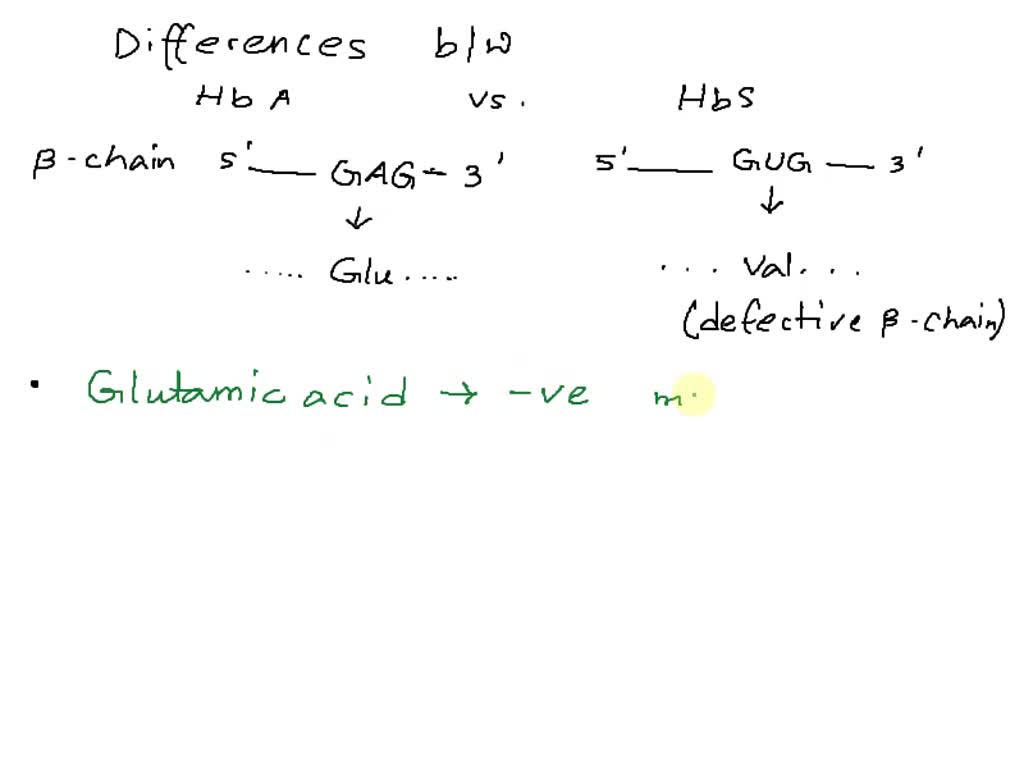 Differences b/w
Hb A vs. HbS
β-chain 5'—GAG-3' 5'—GUG—3'
↓ ↓
..... Glu ..... ... Val...
(defective β-chain)
· Glutamic acid → -ve m